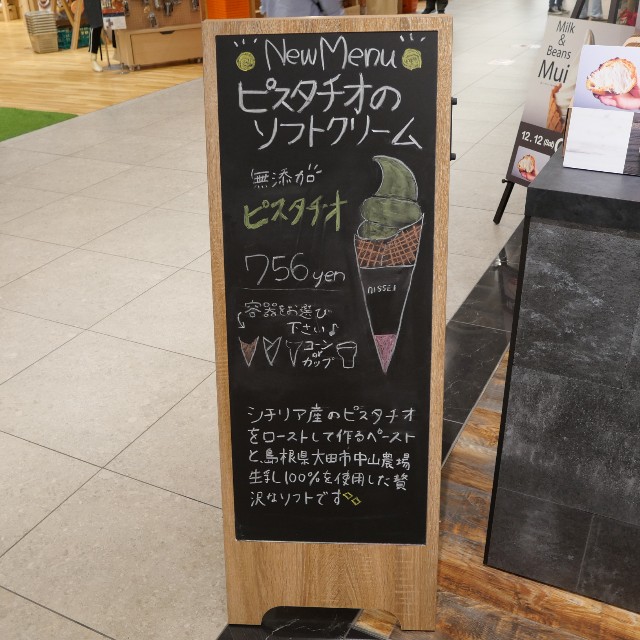 New Menu
ピスタチオの
ソフトクリーム
無添加
ピスタチオ
756yen
NISSEI
容器をお選び
下さい♪
コーン
or
カップ
シチリア産のピスタチオ
をローストして作るペースト
と、島根県大田市中山農場
生乳100%を使用した贅
沢なソフトです
Milk
&
Beans
Mui
12.12